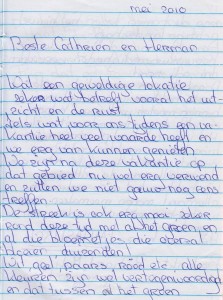 mei 2010
Beste Catherien en Herman
Wat een geweldige lokatie
zeker wat betreft vooral het uit-
zicht en de rust
Iets wat voor ons tijdens een va-
kantie heel veel waarde heeft en
we erg van kunnen genieten
We zijn na deze vakantie op
dat gebied nu wel erg verwend
en zullen we niet gauw nog eens
treffen
De streek is ook erg mooi zeker
rond deze tijd met al het groen en
al die bloemetjes die overal
tussen duizenden
Wit, geel, paars, rood etc alle
kleuren zijn wel vertegenwoordigd
en dat tussen al het groen